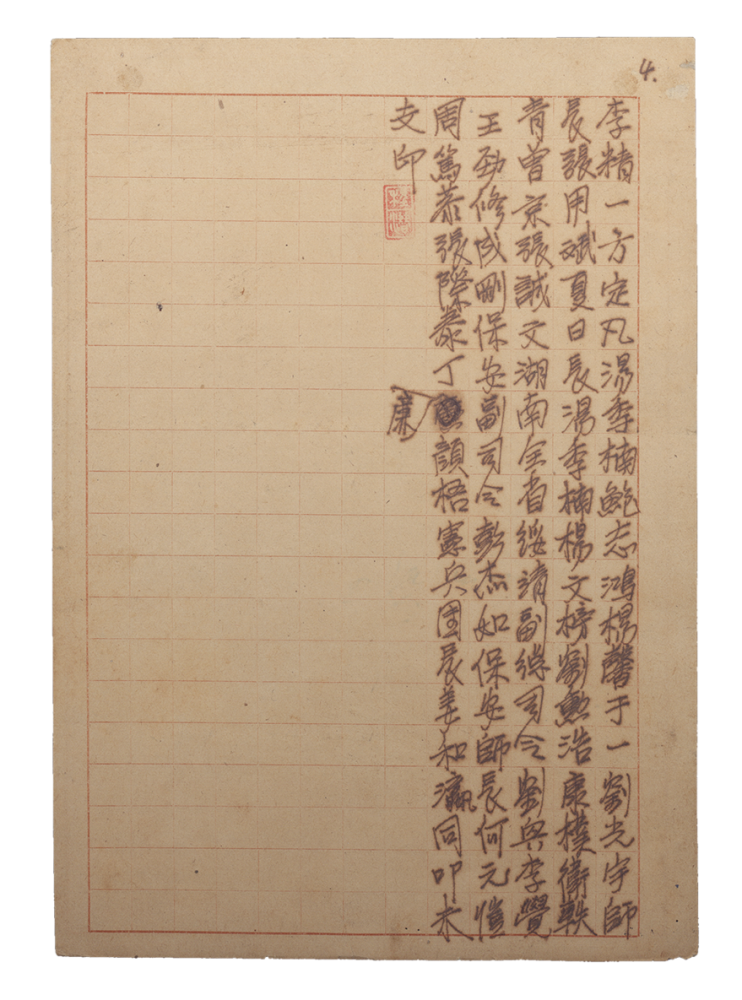 4.
李精一方定凡湯季楠鮑志鴻楊馨于一劉光宇師
長張用斌夏日長湯季楠楊文榜劉勳浩康樸衛軼
青曾京張誠文湖南全省綏靖副總司令劉興李覺
王勁修成剛保安副司令彭杰如保安師長何元愷
周篤恭張際泰丁廉顏梧憲兵團長姜和瀛同叩未
支印